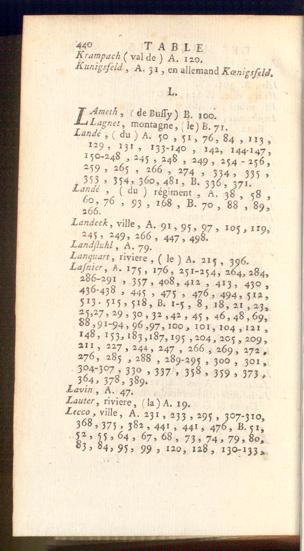 440 TABLE
Krampach (val de) A. 120.
Kunigsfeld, A. 31, en allemand Kœnigsfeld.
L.
LAmeth, (de Bussy) B. 100.
Llagnet, montagne, (le) B. 71.
Landé, (du) A. 50, 51, 76, 84, 113,
129, 131, 133-140, 142, 144-147,
150-248, 245, 248, 249, 254-256,
259, 265, 266, 274, 334, 335,
353, 354, 360, 481, B. 336, 371.
Landé, (du) régiment, A. 38, 58,
60, 76, 93, 168, B. 70, 88, 89,
266.
Landeck, ville, A. 91, 95, 97, 105, 119,
245, 249, 266, 447, 498.
Landstuhl, A. 79.
Lanquart, riviere, (le) A. 215, 396.
Lasnier, A. 175, 176, 251-254, 264, 284,
286-291, 357, 408, 412, 413, 430,
436-438, 445, 475, 476, 494, 512,
513, 515, 518, B. 1-5, 8, 18, 21, 23,
25, 27, 29, 30, 32, 42, 45, 46, 48, 69,
88, 91-94, 96, 97, 100, 101, 104, 121,
148, 153, 183, 187, 195, 204, 205, 209,
211, 227, 244, 247, 266, 269, 272,
276, 285, 288, 289-295, 300, 301,
304-307, 330, 337, 358, 359, 373,
364, 378, 389.
Lavin, A. 47.
Lauter, riviere, (la) A. 19.
Lecco, ville, A. 231, 233, 295, 307-310,
368, 375, 382, 441, 441, 476, B. 51,
52, 55, 64, 67, 68, 73, 74, 79, 80,
83, 84, 95, 99, 120, 128, 130-133,